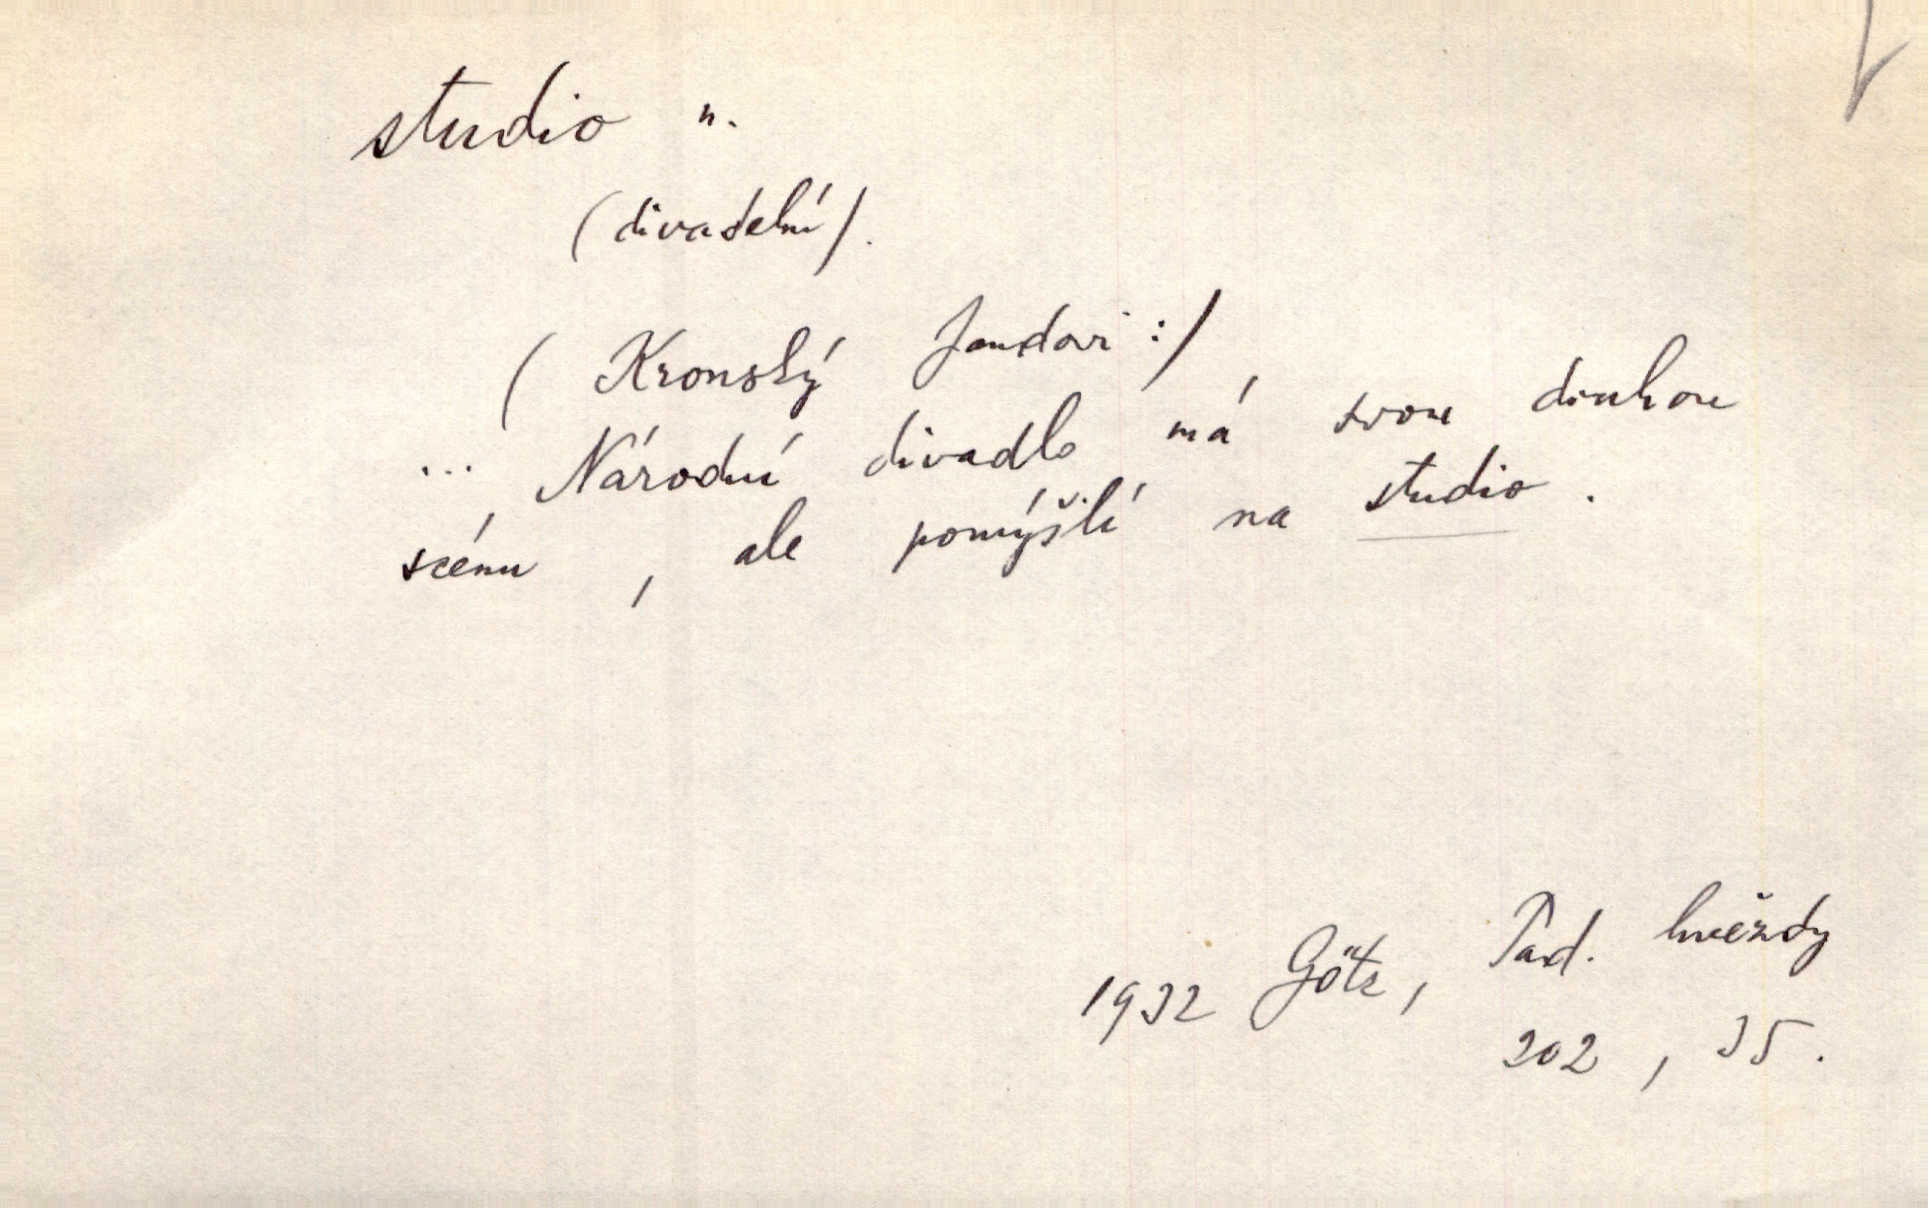 studio n.
(divadelní).
(Kronský Jandovi:)
... Národní divadlo má svou druhou
scénu, ale pomýšlí na studio.
1932 Götz, Pad. hvězdy
202, 35.